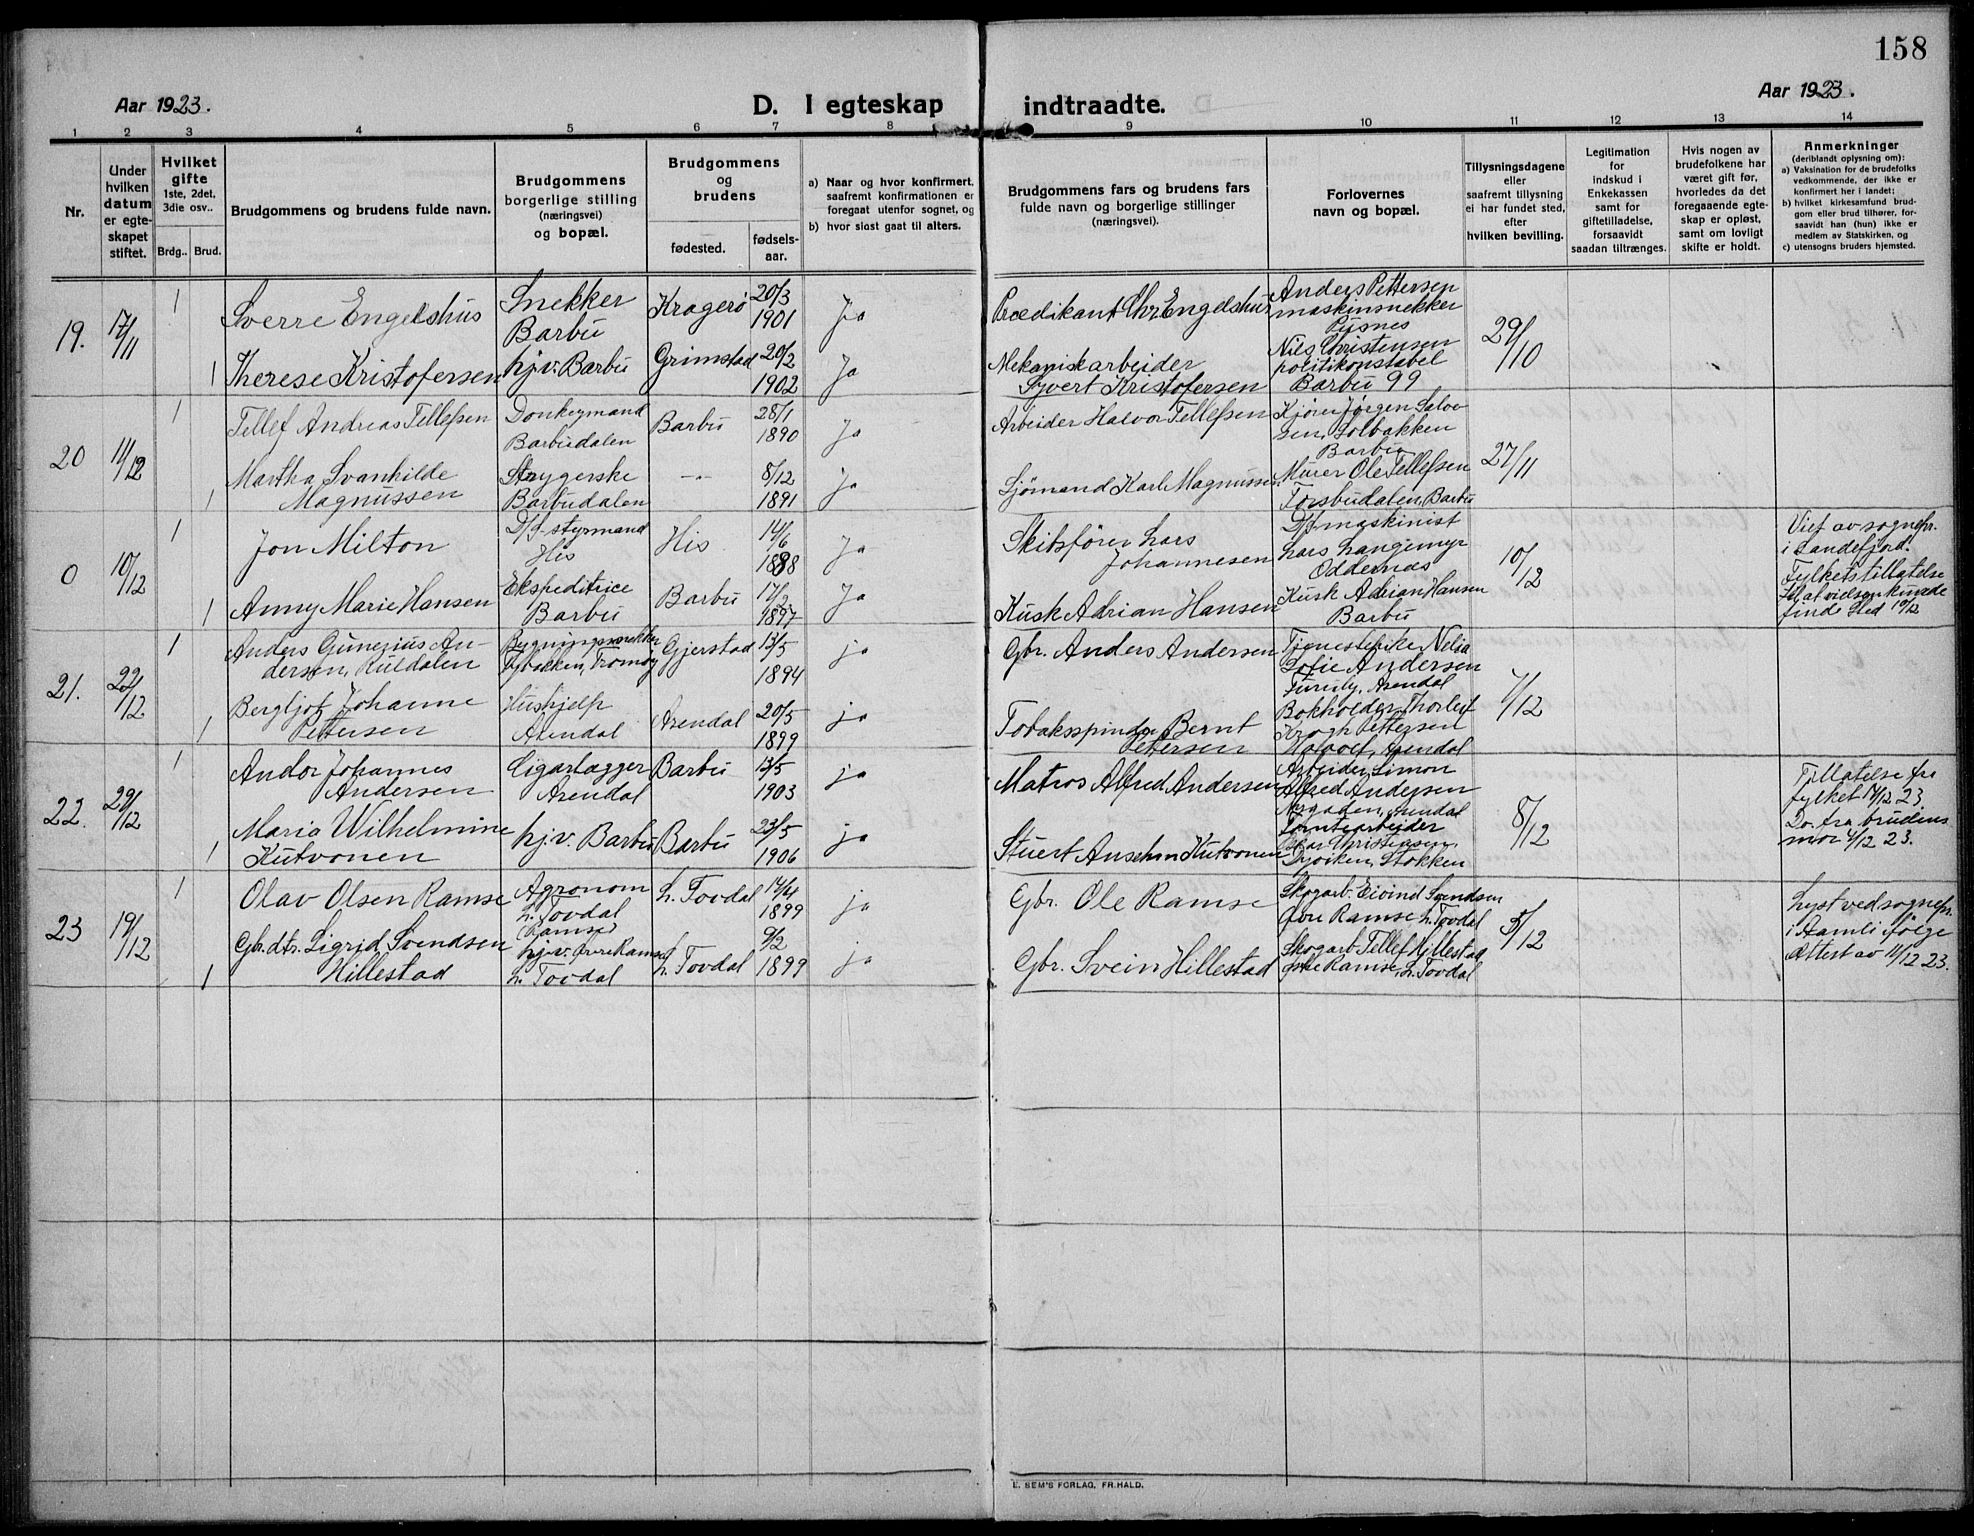 158
Aar 1923.
D. I egteskap indtraadte.
Aar 1923.
1 2 3 4 5 6 7 8 9 10 11 12 13 14
Nr.
Under hvilken datum er egteskapet stiftet.
Hvilket gifte
1ste, 2det, 3die osv..
Brdg.. Brud.
Brudgommens og brudens fulde navn.
Brudgommens borgerlige stilling (næringsvei) og bopæl.
Brudgommens og brudens
fødested.
fødsels-aar.
a) Naar og hvor konfirmert, saafremt konfirmationen er foregaat utenfor sognet, og
b) hvor sidst gaat til alters.
Brudgommens fars og brudens fars
fulde navn og borgerlige stillinger
(næringsvei).
Forlovernes
navn og bopæl.
Tillysningsdagene
eller
saafremt tillysning
ei har fundet sted,
efter
hvilken bevilling.
Legitimation
for
indskud i
Enkekassen
samt for
giftetilladelse,
forsaavidt
saadan tiltrænges.
Hvis nogen av
brudefolkene har
været gift før,
hvorledes da det
foregaaende egte-
skap er opløst,
samt om lovligt
skifte er holdt.
Anmerkninger
(deriblandt oplysning om):
a) Vaksination for de brudefolks
vedkommende, der ikke er
konfirmert her i landet;
b) hvilket kirkesamfund brud-
gom eller brud tilhører, for-
saavidt han (hun) ikke er
medlem av Statskirken, og
c) utensogns bruders hjemsted.
19. 17/11
1 Sverre Engelshus
Snekker
Barbu
Kragerø
20/3
1901
Ja
Prædikant Chr Engelshus
Anders Pettersen
maskinsnekker
Pusnes
29/10
1 Therese Kristofersen
hj.v. Barbu
Grimstad
20/2
1902
Ja
Mekanisk arbeider
Syvert Kristofersen
Nils Christensen
politikonstabel
Barbu 99
20 11/12
1 Tellef Andreas Tellefsen
Donkeymand
Barbudalen
Barbu
28/1
1890
Ja
Arbeider Halvor Tellefsen
Kjører Jørgen Salve-
sen, Solbakken
Barbu
27/11
1 Martha Svanhilde
Magnussen
Strygerske
Barbudalen
-"-
8/12
1891
Ja
Sjømand Karl Magnussen
Murer Ole Tellefsen
Torsbudalen, Barbu
0 10/12
1 Jon Milton
D/S-styrmand
His
His
14/6
1888
Ja
Skibsfører Lars
Johannesen
D/S maskinist
Lars Langemyr
Oddernes
10/12
Viet av sognepr.
i Sandefjord.
Fylkets tillatelse
til at vielsen kunde
finde sted 10/12
1 Anny Marie Hansen
Ekspeditrice
Barbu
Barbu
17/2
1897
Ja
Kusk Adrian Hansen
Kusk Adrian Hansen
Barbu
21. 22/12
1 Anders Gunerius An-
dersen,
Bygningssnekker
Tromøy
Gjerstad
13/5
1894
ja
Gbr. Anders Andersen
Tjenestepike Nelia
Sofie Andersen
Furuly, Arendal
7/12
1 Bergljot Johanne
Pettersen
Hushjelp
Arendal
Arendal
20/5
1899
ja
Tobaksspinder Bernt
Petersen
Bokholder Thorleif
Krogh Pettersen
Arendal
22. 29/12
1 Andor Johannes
Andersen
Cigarlægger
Arendal
Barbu
13/5
1903
ja
Matros Alfred Andersen
Arbeider Simon
Alfred Andersen
Nygaden, Arendal
8/12
Tillatelse fra
fylket 17/12 23.
Do. fra brudens
mor 4/12 23.
1 Maria Wilhelmine
Kutvonen
hj.v. Barbu
Barbu
23/5
1906
ja
Stuert Anselm Kutvonen
Tomtearbeider
Oskar Christensen,
Stokken
23 19/12
1 Olav Olsen Ramse
Agronom
h. Tovdal
(Ramse)
h. Tovdal
14/4
1899
ja
Gbr. Ole Ramse
Skogarb. Eivind Svendsen
øvre Ramse h. Tovdal
5/12
Lyst ved sognepr.
i Aamli ifølge
Attest av 11/12 23.
1 Gbr.dtr. Sigrid Svendsen
Hillestad
hj.v. øvre Ramse
h. Tovdal
h. Tovdal
9/2
1899
ja
Gbr. Svein Hillestad
Skogarb. Tellef Hillestad
øvre Ramse, h. Tovdal
E. SEM'S FORLAG, FR.HALD.